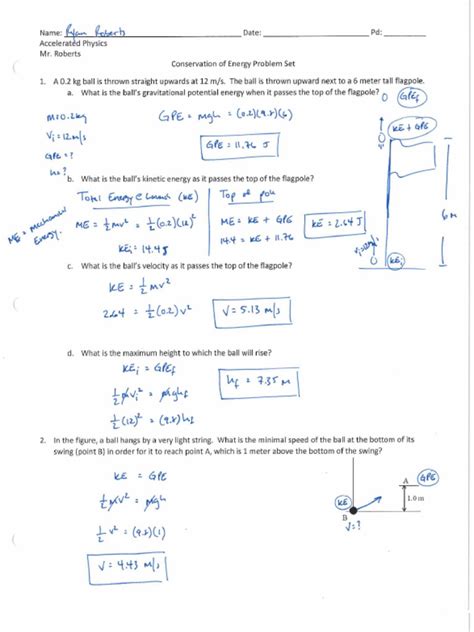 Name: Ryan Roberts Date: Pd:
Accelerated Physics
Mr. Roberts
Conservation of Energy Problem Set
1. A 0.2 kg ball is thrown straight upwards at 12 m/s. The ball is thrown upward next to a 6 meter tall flagpole.
a. What is the ball's gravitational potential energy when it passes the top of the flagpole?
0 GPEf
m=0.2kg
GPE = mgh = (0.2)(9.8)(6)
Vi=12m/s
GPE=?
h=?
GPE = 11.76 J
KE + GPE
6m
Vi=12m/s
KEi
b. What is the ball's kinetic energy as it passes the top of the flagpole?
ME = Mechanical Energy.
Total Energy @ Launch (KE)
Top of pole
ME = ½mv² = ½(0.2)(12)²
KEi = 14.4J
ME = KE + GPE
14.4 = KE + 11.76
KE = 2.64 J
c. What is the ball's velocity as it passes the top of the flagpole?
KE = ½mv²
2.64 = ½(0.2)v²
V = 5.13 m/s
d. What is the maximum height to which the ball will rise?
KEi = GPEf
½mvi² = mghf
½(12)² = (9.8)hf
hf = 7.35 m
2. In the figure, a ball hangs by a very light string. What is the minimal speed of the ball at the bottom of its
swing (point B) in order for it to reach point A, which is 1 meter above the bottom of the swing?
KE = GPE
½mv² = mgh
½v² = (9.8)(1)
V = 4.43 m/s
A GPE
1.0 m
KE
B
V=?